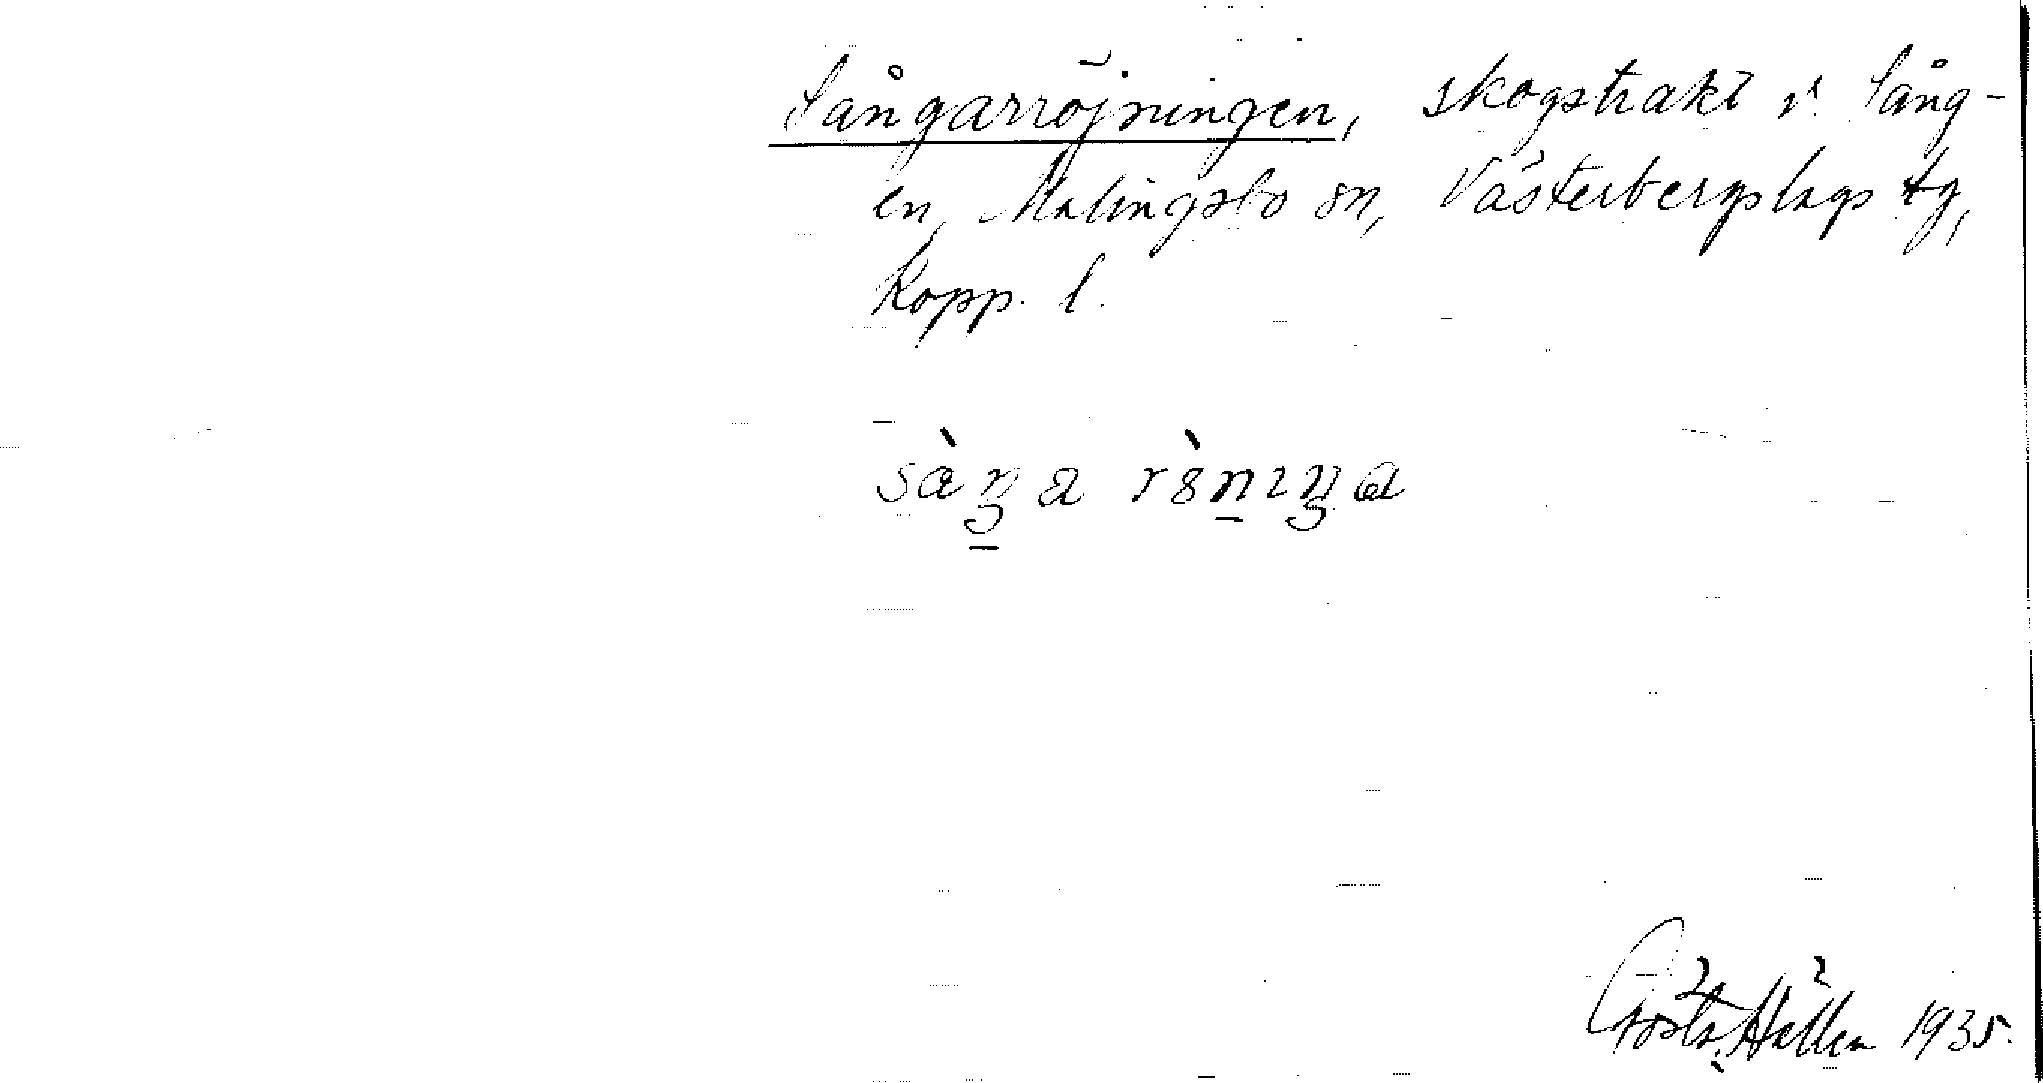 Sångarröjningen, skogstrakt v. Sång-
en, Malingsbo sn, Västerbergslags tg,
Kopp. l.
Gösta Hallén 1935.